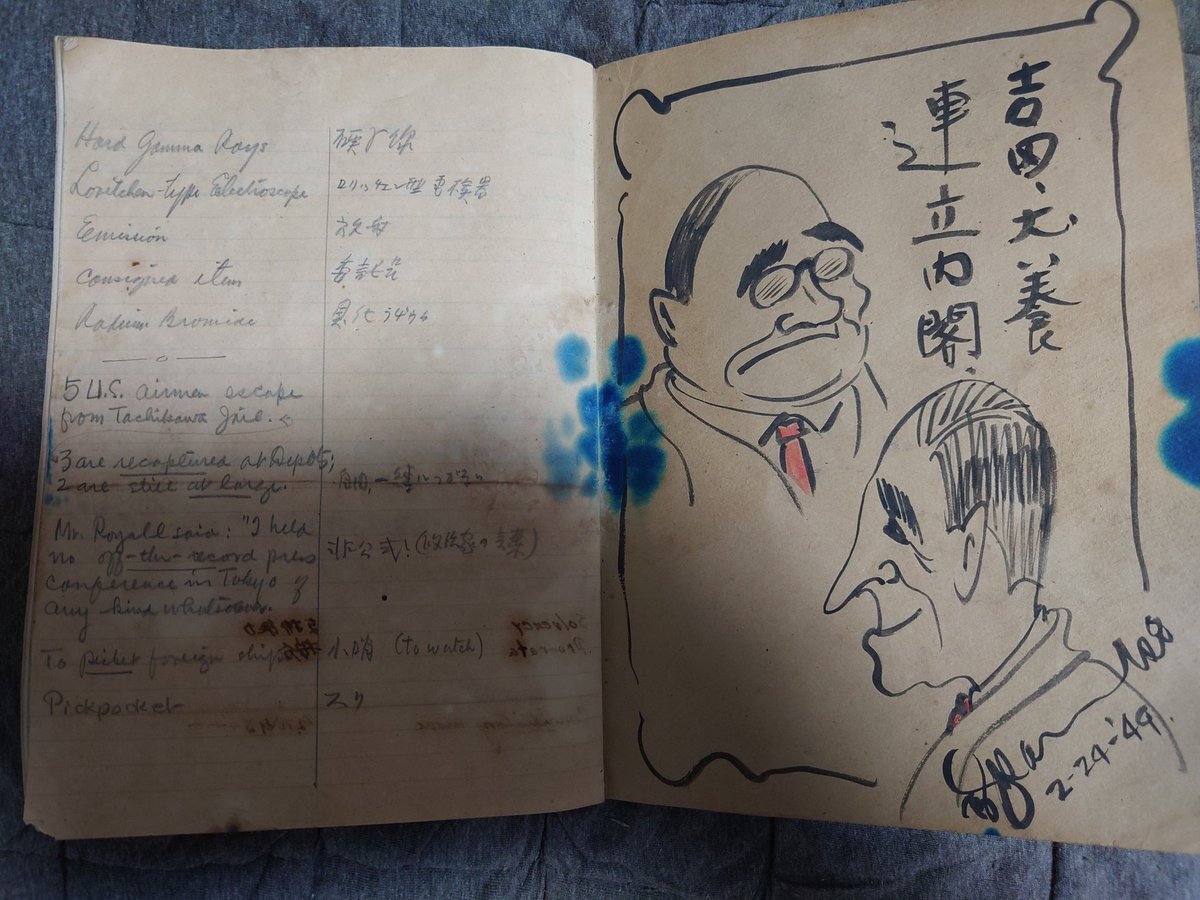 Hard Gamma Rays 硬γ線
Loritchen-type Electroscope ロリッチェン型 電検器
Emission 放射
Consigned item 委託品
Radium Bromide 臭化ラヂウム
5 U.S. airmen escape
from Tachikawa Jail.
3 are recaptured at Depot;
2 are still at large. 自由,
Mr. Royall said: "I held
no off-the-record press 非公式! (政治家の言葉)
conference in Tokyo of
any kind whatsoever.
To picket foreign ships 小哨 (to watch)
Pickpocket スリ
吉田、犬養
連立内閣、
2-24-'49